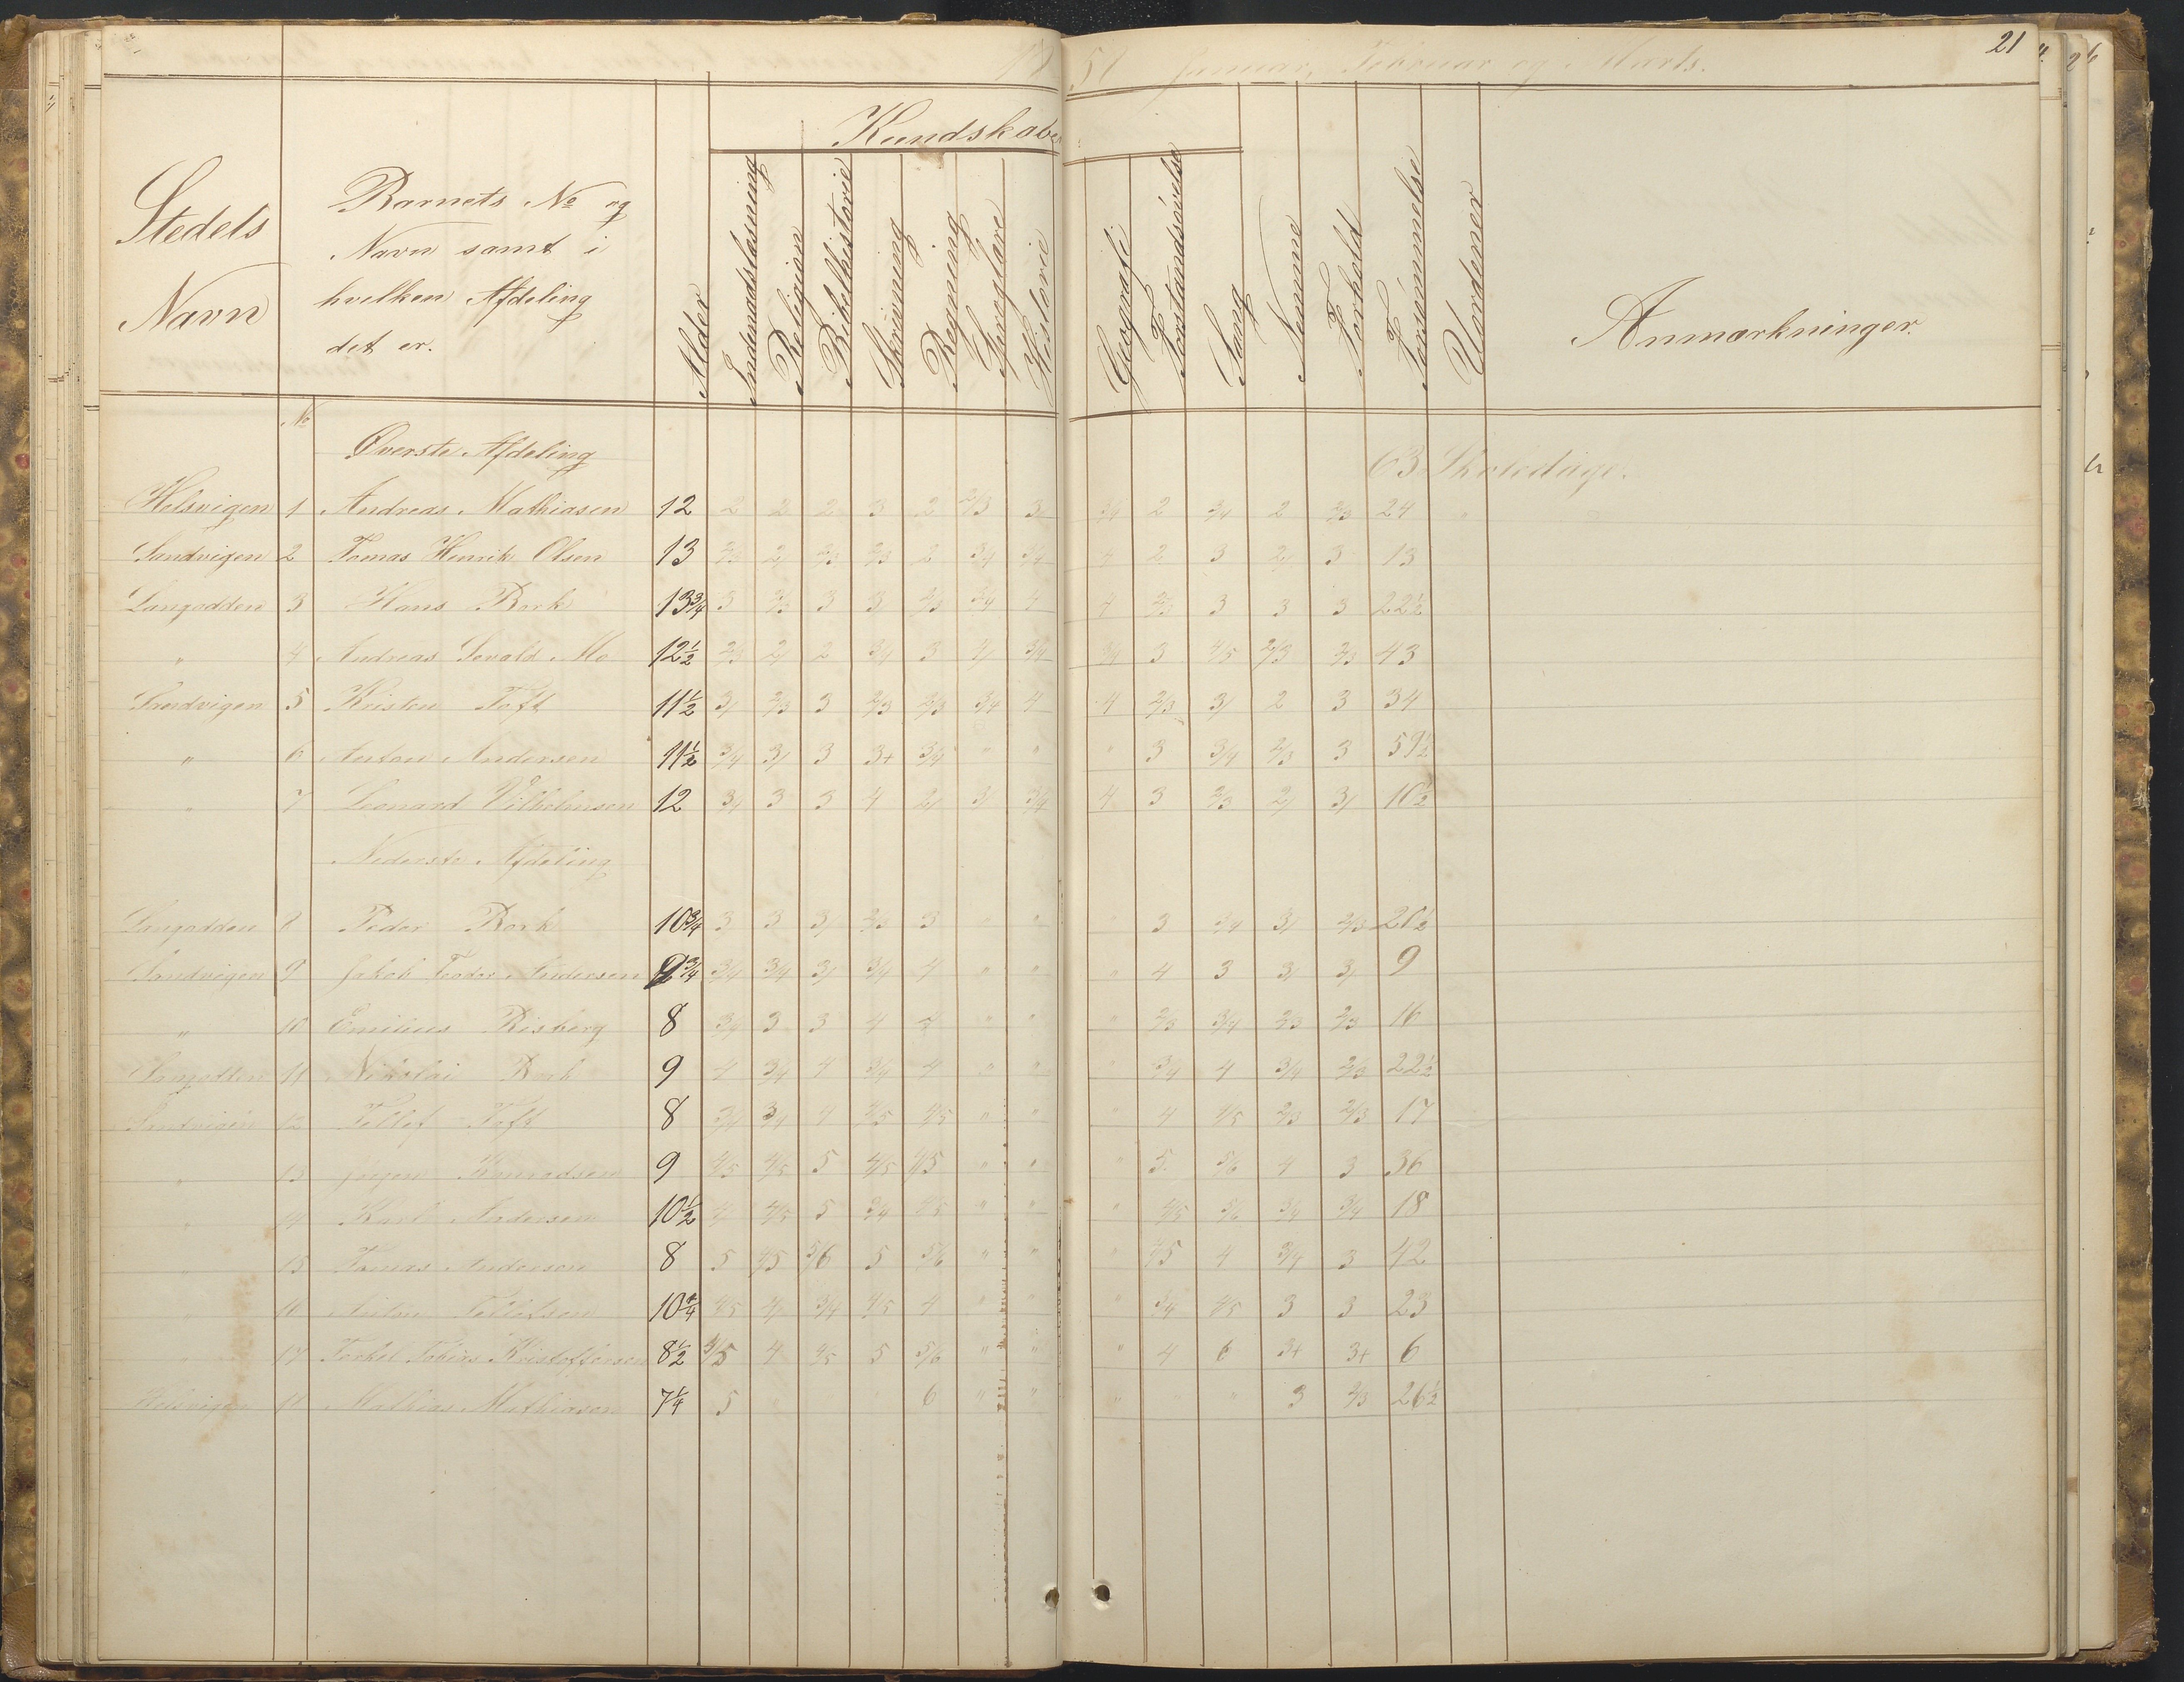 51 Januar, Februar og Marts. 21
Stedets Navn
Barnets No og Navn samt i hvilken Afdeling det er.
Alder
Kundskaber
Indenadslæsning
Religion
Bibelhistorie
Skrivning
Regning
Sproglære
Historie
Geografi
Forstandsøvelse
Sang
Nemme
Forhold
Forsømmelse
Uordener
Anmærkninger.
No
Øverste Afdeling 63 Skoledage.
Helsvigen 1 Andreas Mathiasen 12 2 2 2 3 2 2/3 3/4 3/4 2 3/4 2 2/3 24 "
Sandvigen 2 Tomas Henrik Olsen 13 2/3 2/ 2/3 2/3 2 3/4 3/4 4 2 3 2/ 3 13
Langodden 3 Hans Bork 13 3/4 3 2/3 3 3 2/3 3/4 4 4 2/3 3 3 3 22 1/2
" 4 Andreas Sevald Mo 12 1/2 2/3 2/ 2 3/4 3 4/ 3/4 3 4/5 2/3 2/3 43
Sandvigen 5 Kristen Toft 11 1/2 3/ 2/3 3 2/3 2/3 3/4 4 4 2/3 3/ 2 3 34
" 6 Anton Andersen 11 1/2 3/4 3/ 3 3+ 3/4 " " " 3 3/4 2/3 3 59 1/2
" 7 Leonard Vilhelmsen 12 3/ 3 3 4 2/ 3/ 3/4 4 3 2/3 2/ 3/ 16 1/2
Nederste Afdeling
Langodden 8 Peder Bork 10 3/4 3 3 3/ 2/3 3 " " 3 3/4 3/ 2/3 21 1/2
Sandvigen 9 Jakob Teodor Andersen 9 3/4 3/4 3/4 3/ 3/4 4 " " " 4 3 3/ 3/ 9
" 10 Emilius Risberg 8 3/4 3 3 4 4 " " " 2/3 3/4 2/3 2/3 16
Langodden 11 Nikolai Bork 9 4 3/4 4 3/4 4 " " " 3/4 4 3/4 2/3 22 1/2
Sandvigen 12 Tellef Toft 8 3/4 3/4 4 4/5 4/5 " " " 4 4/5 2/3 2/3 17
" 13 Jørgen Konradsen 9 4/5 4/5 5 4/5 4/5 " " " 5 5/6 4 3 36
" 14 Karl Andersen 10 1/2 4/ 4/5 5 3/4 4/5 " " " 4/5 5/6 3/4 3/4 18
" 15 Tomas Andersen 8 5 4/5 5/6 5 5/6 " " " 4/5 4 3/4 3 42
" 16 10 1/4 4/5 4/ 3/4 4/5 4 " " " 3/4 4/5 3 3 23
" 17 Terkel Tobias Kristoffersen 8 1/2 4/5 4 4/5 5 5/6 " " " 4 6 3+ 3+ 6
Helsvigen 18 Mathias Mathiasen 7 1/4 5 " " 6 " " " " " 3 2/3 26 1/2